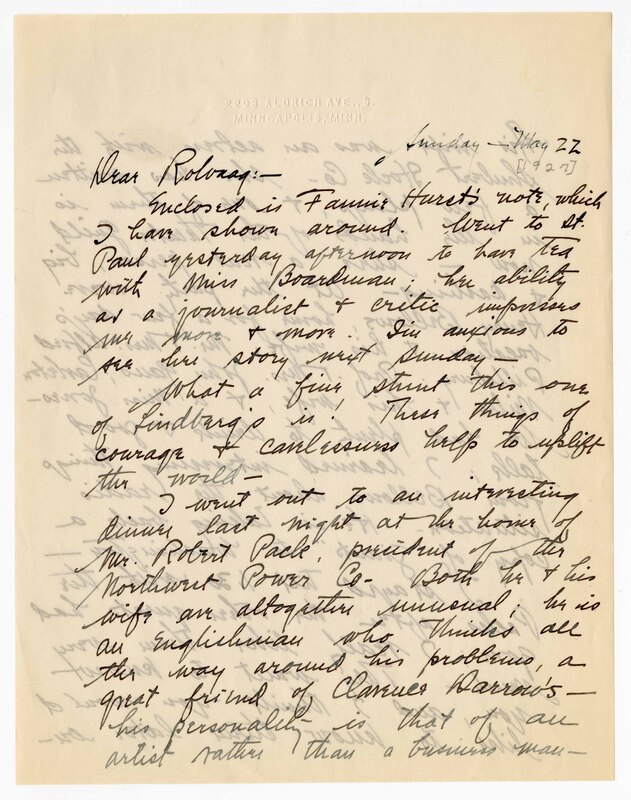 2208 ALDRICH AVE., S.
MINNEAPOLIS, MINN.
Sunday — May 22
[1927]
Dear Rolvaag:—
Enclosed is Fannie Hurst's note, which
I have shown around. Went to St.
Paul yesterday afternoon to have tea
with Miss Boardman; her ability
as a journalist & critic impresses
me more & more. I'm anxious to
see her story next Sunday—
What a fine stunt this one
of Lindberg's is! These things of
courage & carelessness help to uplift
the world—
I went out to an interesting
dinner last night at the home of
Mr. Robert Pack, president of the
Northwest Power Co— Both he & his
wife are altogether unusual; he is
an Englishman who thinks all
the way around his problems, a
great friend of Clarence Darrow's—
his personality is that of an
artist rather than a business man—